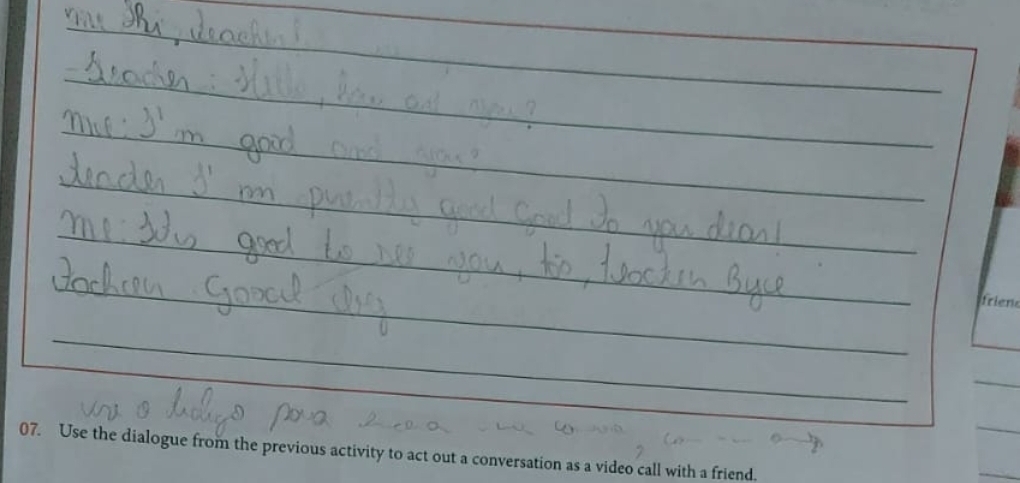 me Hi, teacher!
- Teacher: Hello, how are you?
me: I'm good and you?
teacher I'm pretty good Good to you dear!
me: It's good to see you, too, teacher Bye
Teacher Good day
use o dialogo para
07. Use the dialogue from the previous activity to act out a conversation as a video call with a friend.
friend